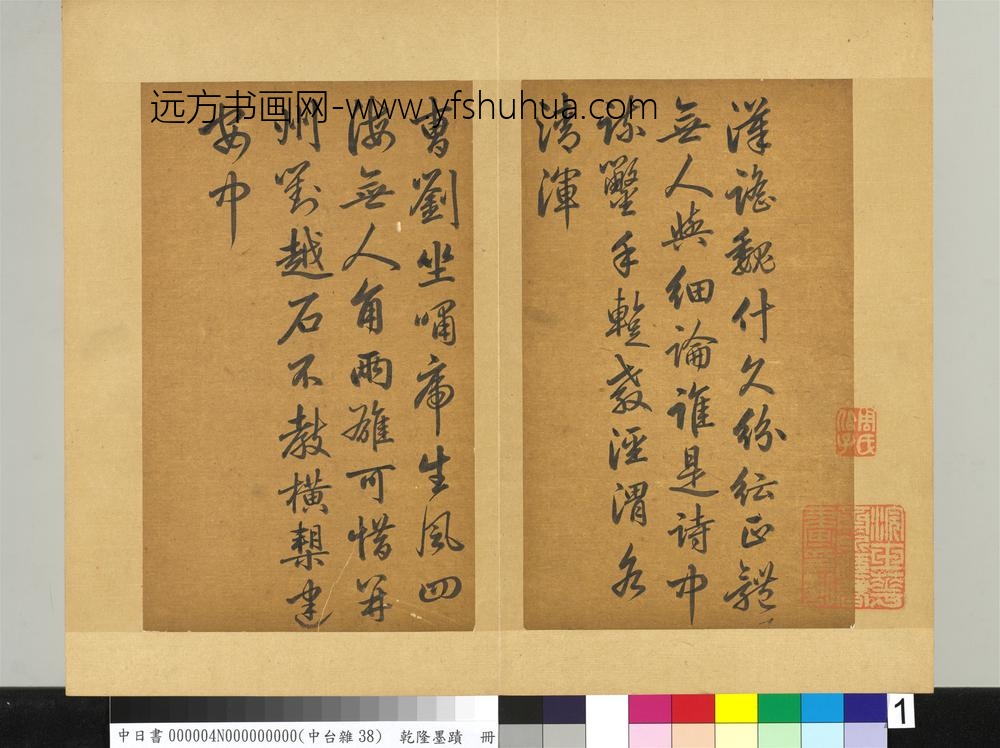 漢謠魏什久紛紜正體
無人與細論誰是詩中
疏鑿手蹔教涇渭各
清渾
曹劉坐嘯虎生風四
海無人角兩雄可惜并
州劉越石不教橫槊建
安中
远方书画网-www.yfshuhua.com
周氏
中日書 000004N000000000(中台雜 38) 乾隆墨蹟 冊
1